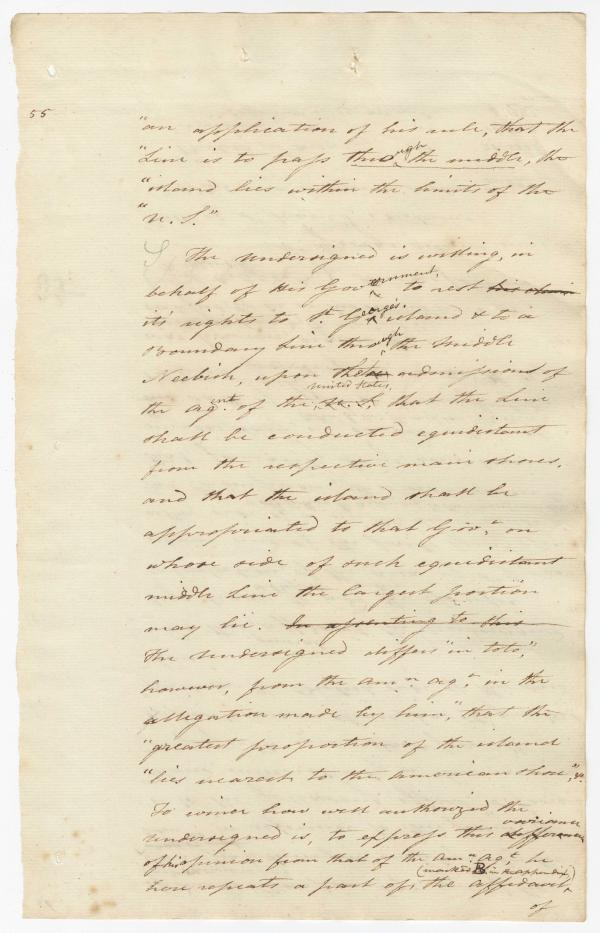 55
"an application of his rule, that the
"Line is to pass through the middle, the
"island lies within the limits of the
"U. S."
The Undersigned is willing, in
behalf of His Government, to rest his claim
it's rights to St. George's island & to a
Boundary Line through the Middle
Neebish, upon the admissions of
the agent of the U. S. United States, that the Line
shall be conducted equidistant
from the respective main shores,
and that the island shall be
appropriated to that Govt. on
whose side of such equidistant
middle Line the largest portion
may lie. In assenting to this
The Undersigned differs "in toto,"
however, from the Amn. agt. in the
allegation made by him, "that the
"greatest proportion of the island
"lies nearest to the American shore", &c.
To evince how well authorized the
Undersigned is, to express this difference variance
of his opinion from that of the Amn. agt. he
here repeats a part of the affidavit (marked B in the appendix)
of